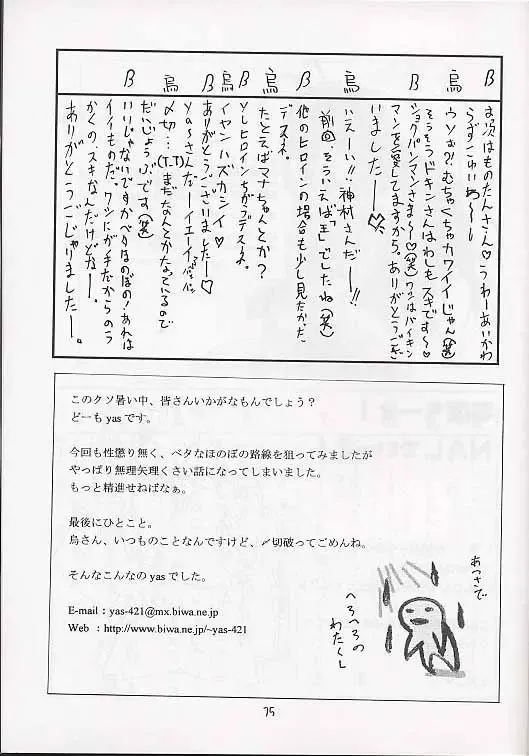 β
お次はものたんさん♡うわーあいかわ
らずすごいめ〜し
烏
ウソぉ?!むちゃくちゃカワイイじゃん(笑)
そうそうドキンさんはわしもスキです〜♡
ショクパンマンさま〜♡(笑)ワシはバイキン
マンを愛してますから。ありがとうござ
いました〜♡
烏
いえーい!!神村さんだー!!
前回、そういえば「王」でしたね(笑)
β
他のヒロインの場合も少し見たかった
デスネ。
烏
たとえばマナちゃんとか?
β
ソレヒロインちがうデスネ。
烏
イヤンハズカシイ♡
β
ありがとうございましたー♡
yasさんだーイエーイ
烏
〆切…(T.T)まだなんとかなってるので
だいじょうぶです(笑)
β
いいじゃないですかベタなほのぼの!あれは
イイものだ。ワシにが手だからのう
かくの、スキなんだけどなー。
ありがとうごじゃりましたー。
このクソ暑い中、皆さんいかがなもんでしょう?
どーも yas です。
今回も性懲り無く、ベタなほのぼの路線を狙ってみましたが
やっぱり無理矢理くさい話になってしまいました。
もっと精進せねばなぁ。
最後にひとこと。
烏さん、いつものことなんですけど、〆切破ってごめんね。
そんなこんなの yas でした。
E-mail : yas-421@mx.biwa.ne.jp
Web : http://www.biwa.ne.jp/~yas-421
あつさで
へろへろの
わたくし
75